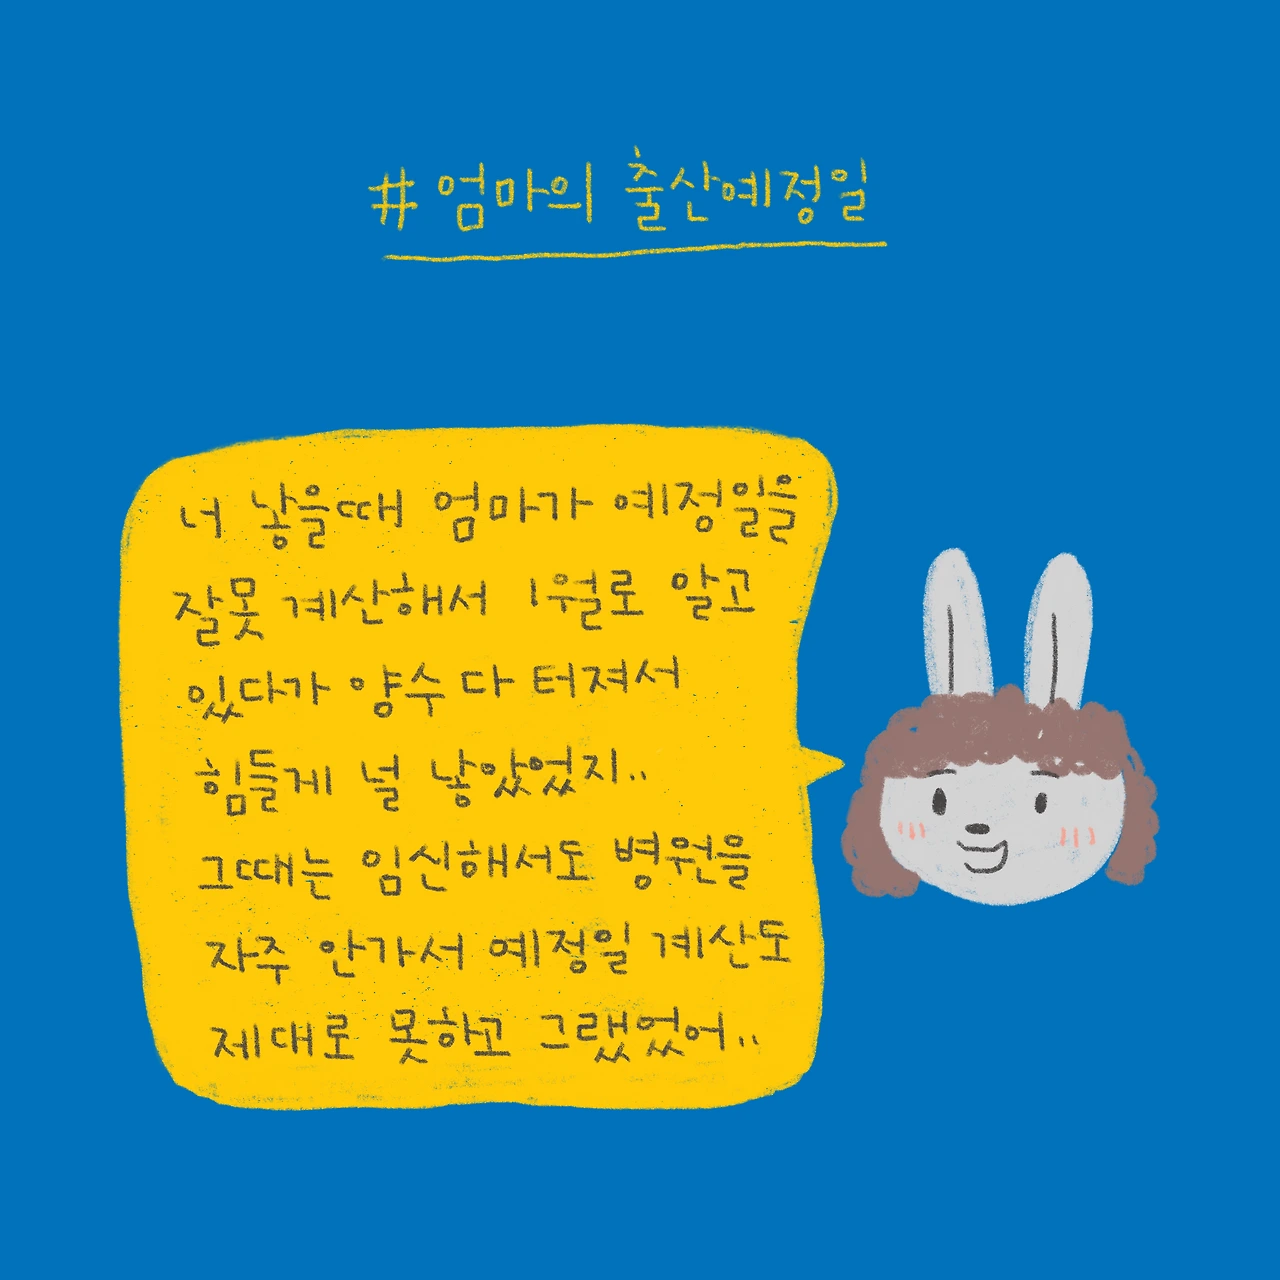 # 엄마의 출산예정일
너 낳을때 엄마가 예정일을
잘못 계산해서 1월로 알고
있다가 양수 다 터져서
힘들게 널 낳았었지..
그때는 임신해서도 병원을
자주 안가서 예정일 계산도
제대로 못하고 그랬었어..